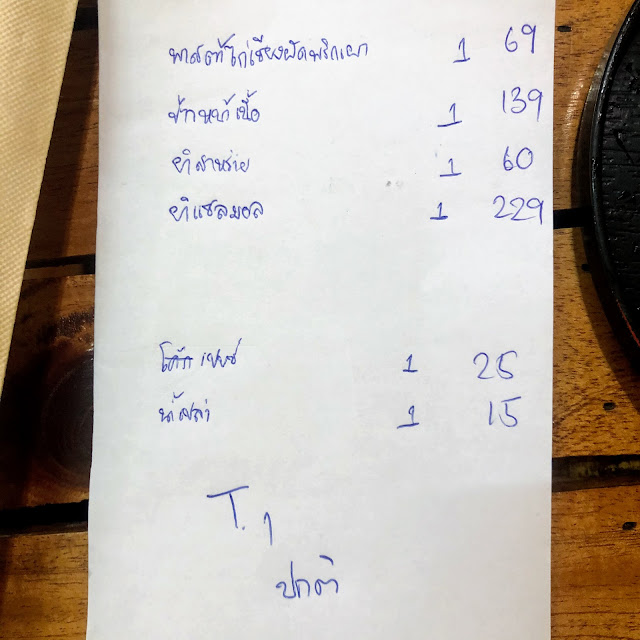 พาสต้าไก่เชียงผัดพริกเผา 1 69
ข้าวหน้าเนื้อ 1 139
ยำสาหร่าย 1 60
ยำแซลมอล 1 229
โค้ก 1 25
น้ำเปล่า 1 15
T. 1
ปกติ